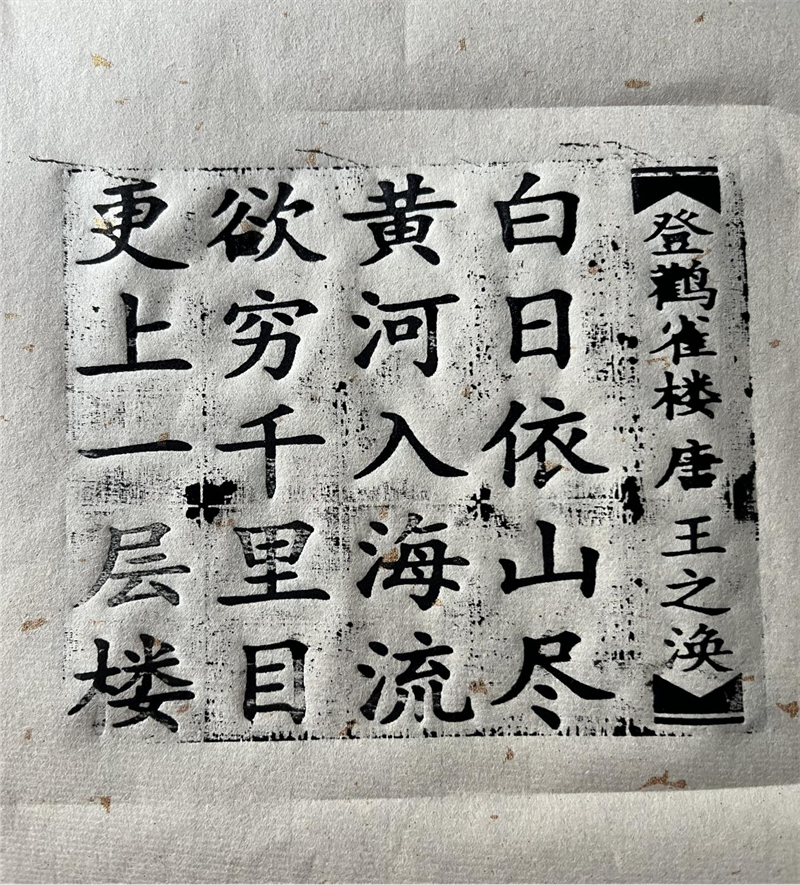 登鹳雀楼 唐 王之涣
白日依山尽
黄河入海流
欲穷千里目
更上一层楼